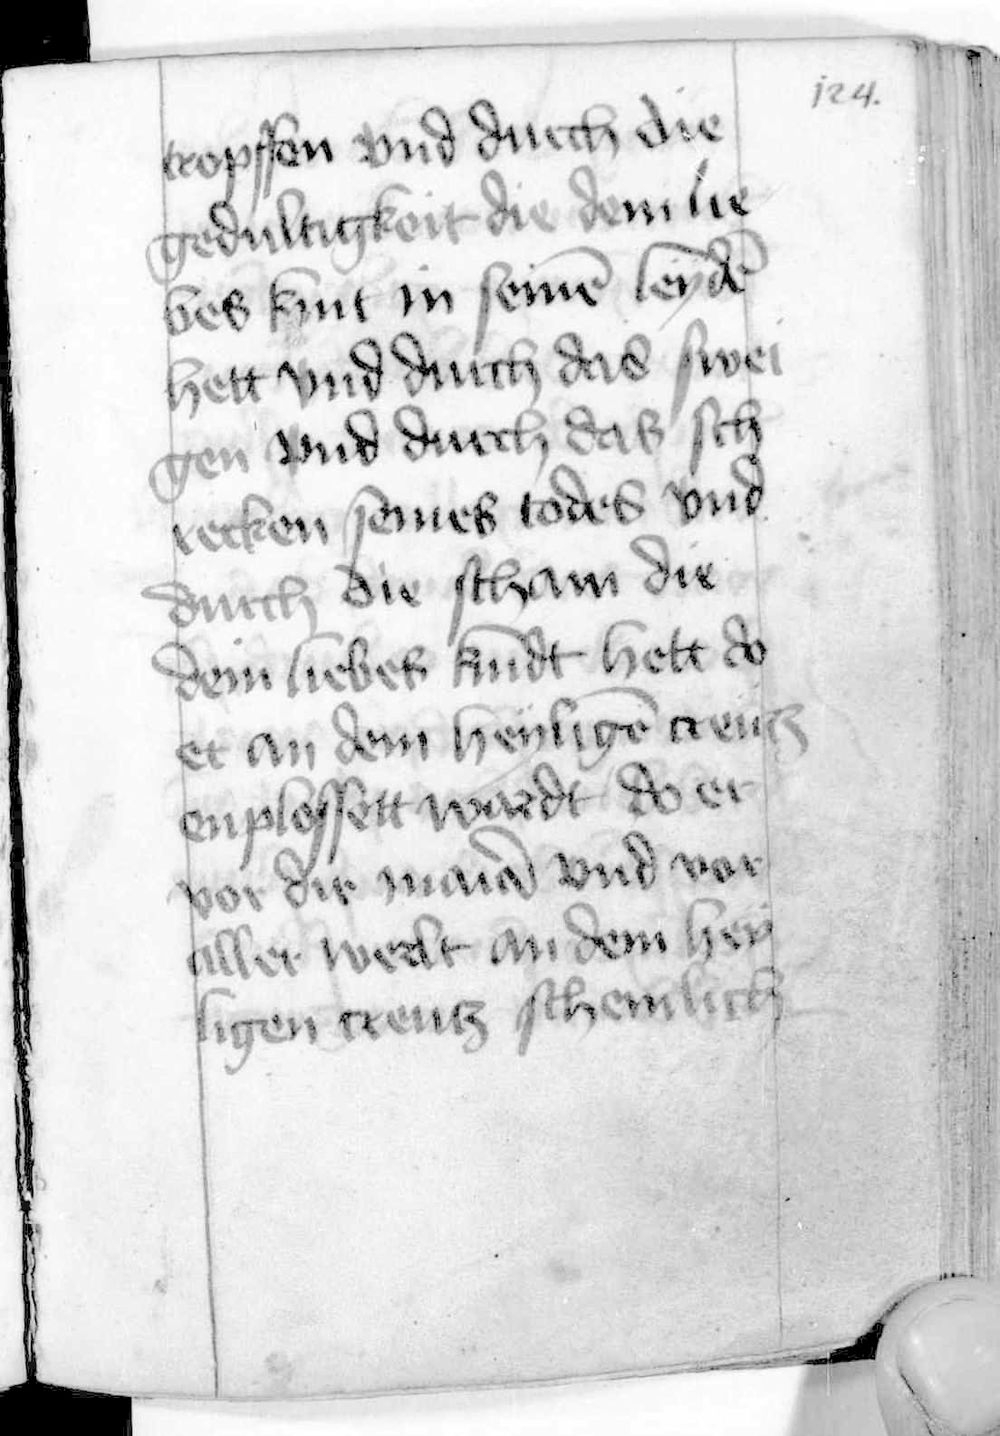 124.
tropffen vnd durch die
gedultigkeit die dem lie
bes kint in seinē leydē
hett vnd durch das swei
gen vnd durch das sch
recken seines todes vnd
durch die scham die
dein liebes kindt hett do
er an dem heyligē creutz
enplossett wardt do er
vor dir maria vnd vor
aller werlt an dem hey
ligen creutz schemlich